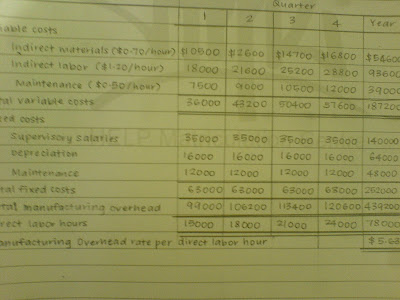 Quarter
1 2 3 4 Year
iable costs
Indirect materials ($0.70/hour) $10500 $12600 $14700 $16800 $54600
Indirect labor ($1.20/hour) 18000 21600 25200 28800 93600
Maintenance ($0.50/hour) 7500 9000 10500 12000 39000
tal variable costs 36000 43200 50400 57600 187200
xed costs
Supervisory salaries 35000 35000 35000 35000 140000
Depreciation 16000 16000 16000 16000 64000
Maintenance 12000 12000 12000 12000 48000
tal fixed costs 63000 63000 63000 63000 252000
tal manufacturing overhead 99000 106200 113400 120600 439200
rect labor hours 15000 18000 21000 24000 78000
anufacturing Overhead rate per direct labor hour $5.63